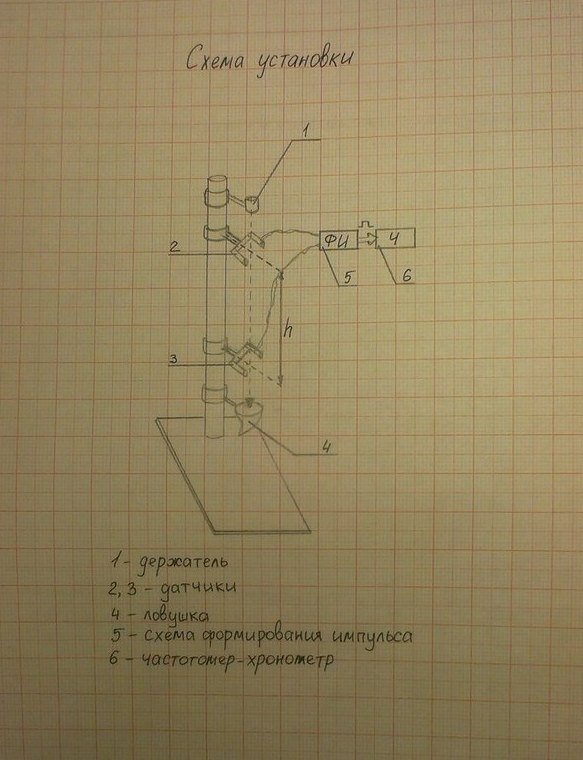 Схема установки
1
2
ФИ
Ч
5
6
h
3
4
1 - держатель
2, 3 - датчики
4 - ловушка
5 - схема формирования импульса
6 - частотомер-хронометр